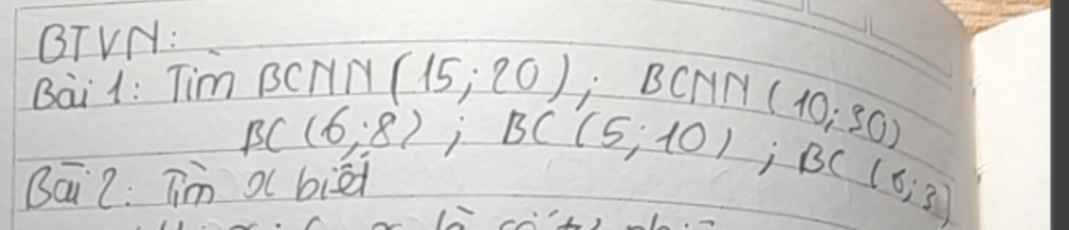 BTVN:
Bài 1: Tìm BCNN (15; 20); BCNN (10; 30)
BC (6; 8); BC (5; 10); BC (6; 3)
Bài 2: Tìm x biết